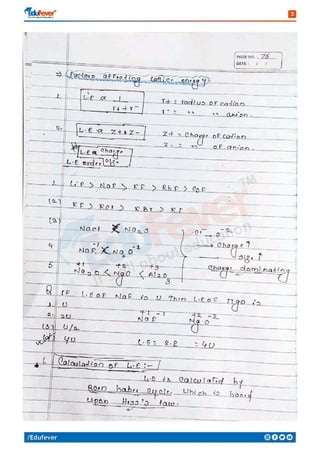 Edufever
3
PAGE NO: 28
DATE: / /
⇒ Factors affecting Lattice energy
1. L.E ∝ 1 / r+ + r-
r+ = radius of cation
r- = " " anion.
2. L.E ∝ Z+ × Z-
Z+ = charge of cation
Z- = " of anion.
L.E ∝ charge
L.E order size
1. LiF > NaF > KF > RbF > CsF
(2) KF > KCl > KBr > KI
(3) NaCl Na2O
Cl- , O-2
→ charge ↑
4 NaF MgO
size ↑
5 Na2O < MgO < Al2O3
charge dominating
Q IF L.E OF NaF is U Then L.E OF MgO is
1. U
2. 2U
(3) U/2
(4) 4U
+1 -1 +2 -2
NaF MgO
= 4U
Calculation of L.E :-
L.E is calculated by
Born haber cycle which is based
upon Hess's law.
Edufever
TM
/Edufever